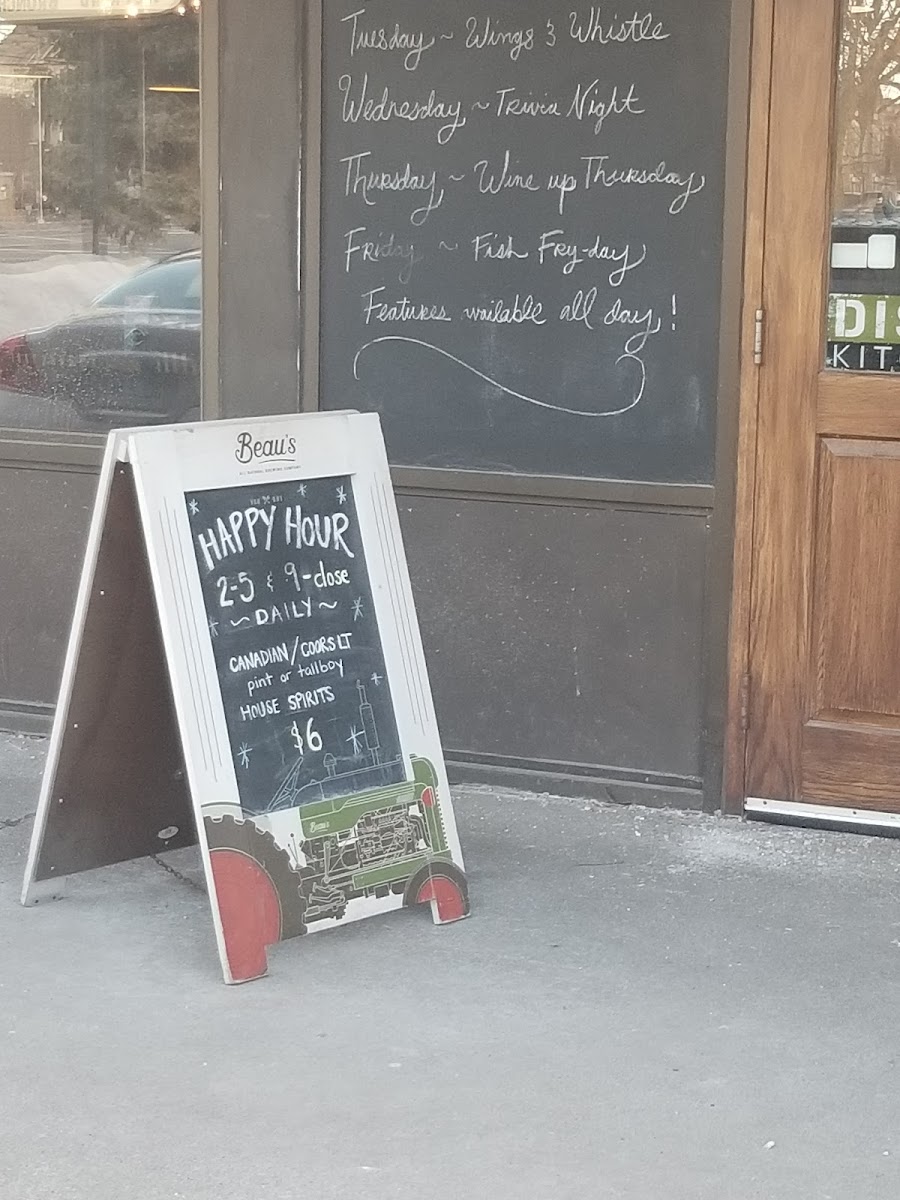 Tuesday ~ Wings & Whistle
Wednesday ~ Trivia Night
Thursday ~ Wine up Thursday
Friday ~ Fish Fry-day
Features vailable all day!
DIS
KIT
Beau's
ALL NATURAL BREWING COMPANY
HAPPY HOUR
2-5 & 9-close
~DAILY~
CANADIAN/COORS LT
pint or tallboy
HOUSE SPIRITS
$6
Beau's